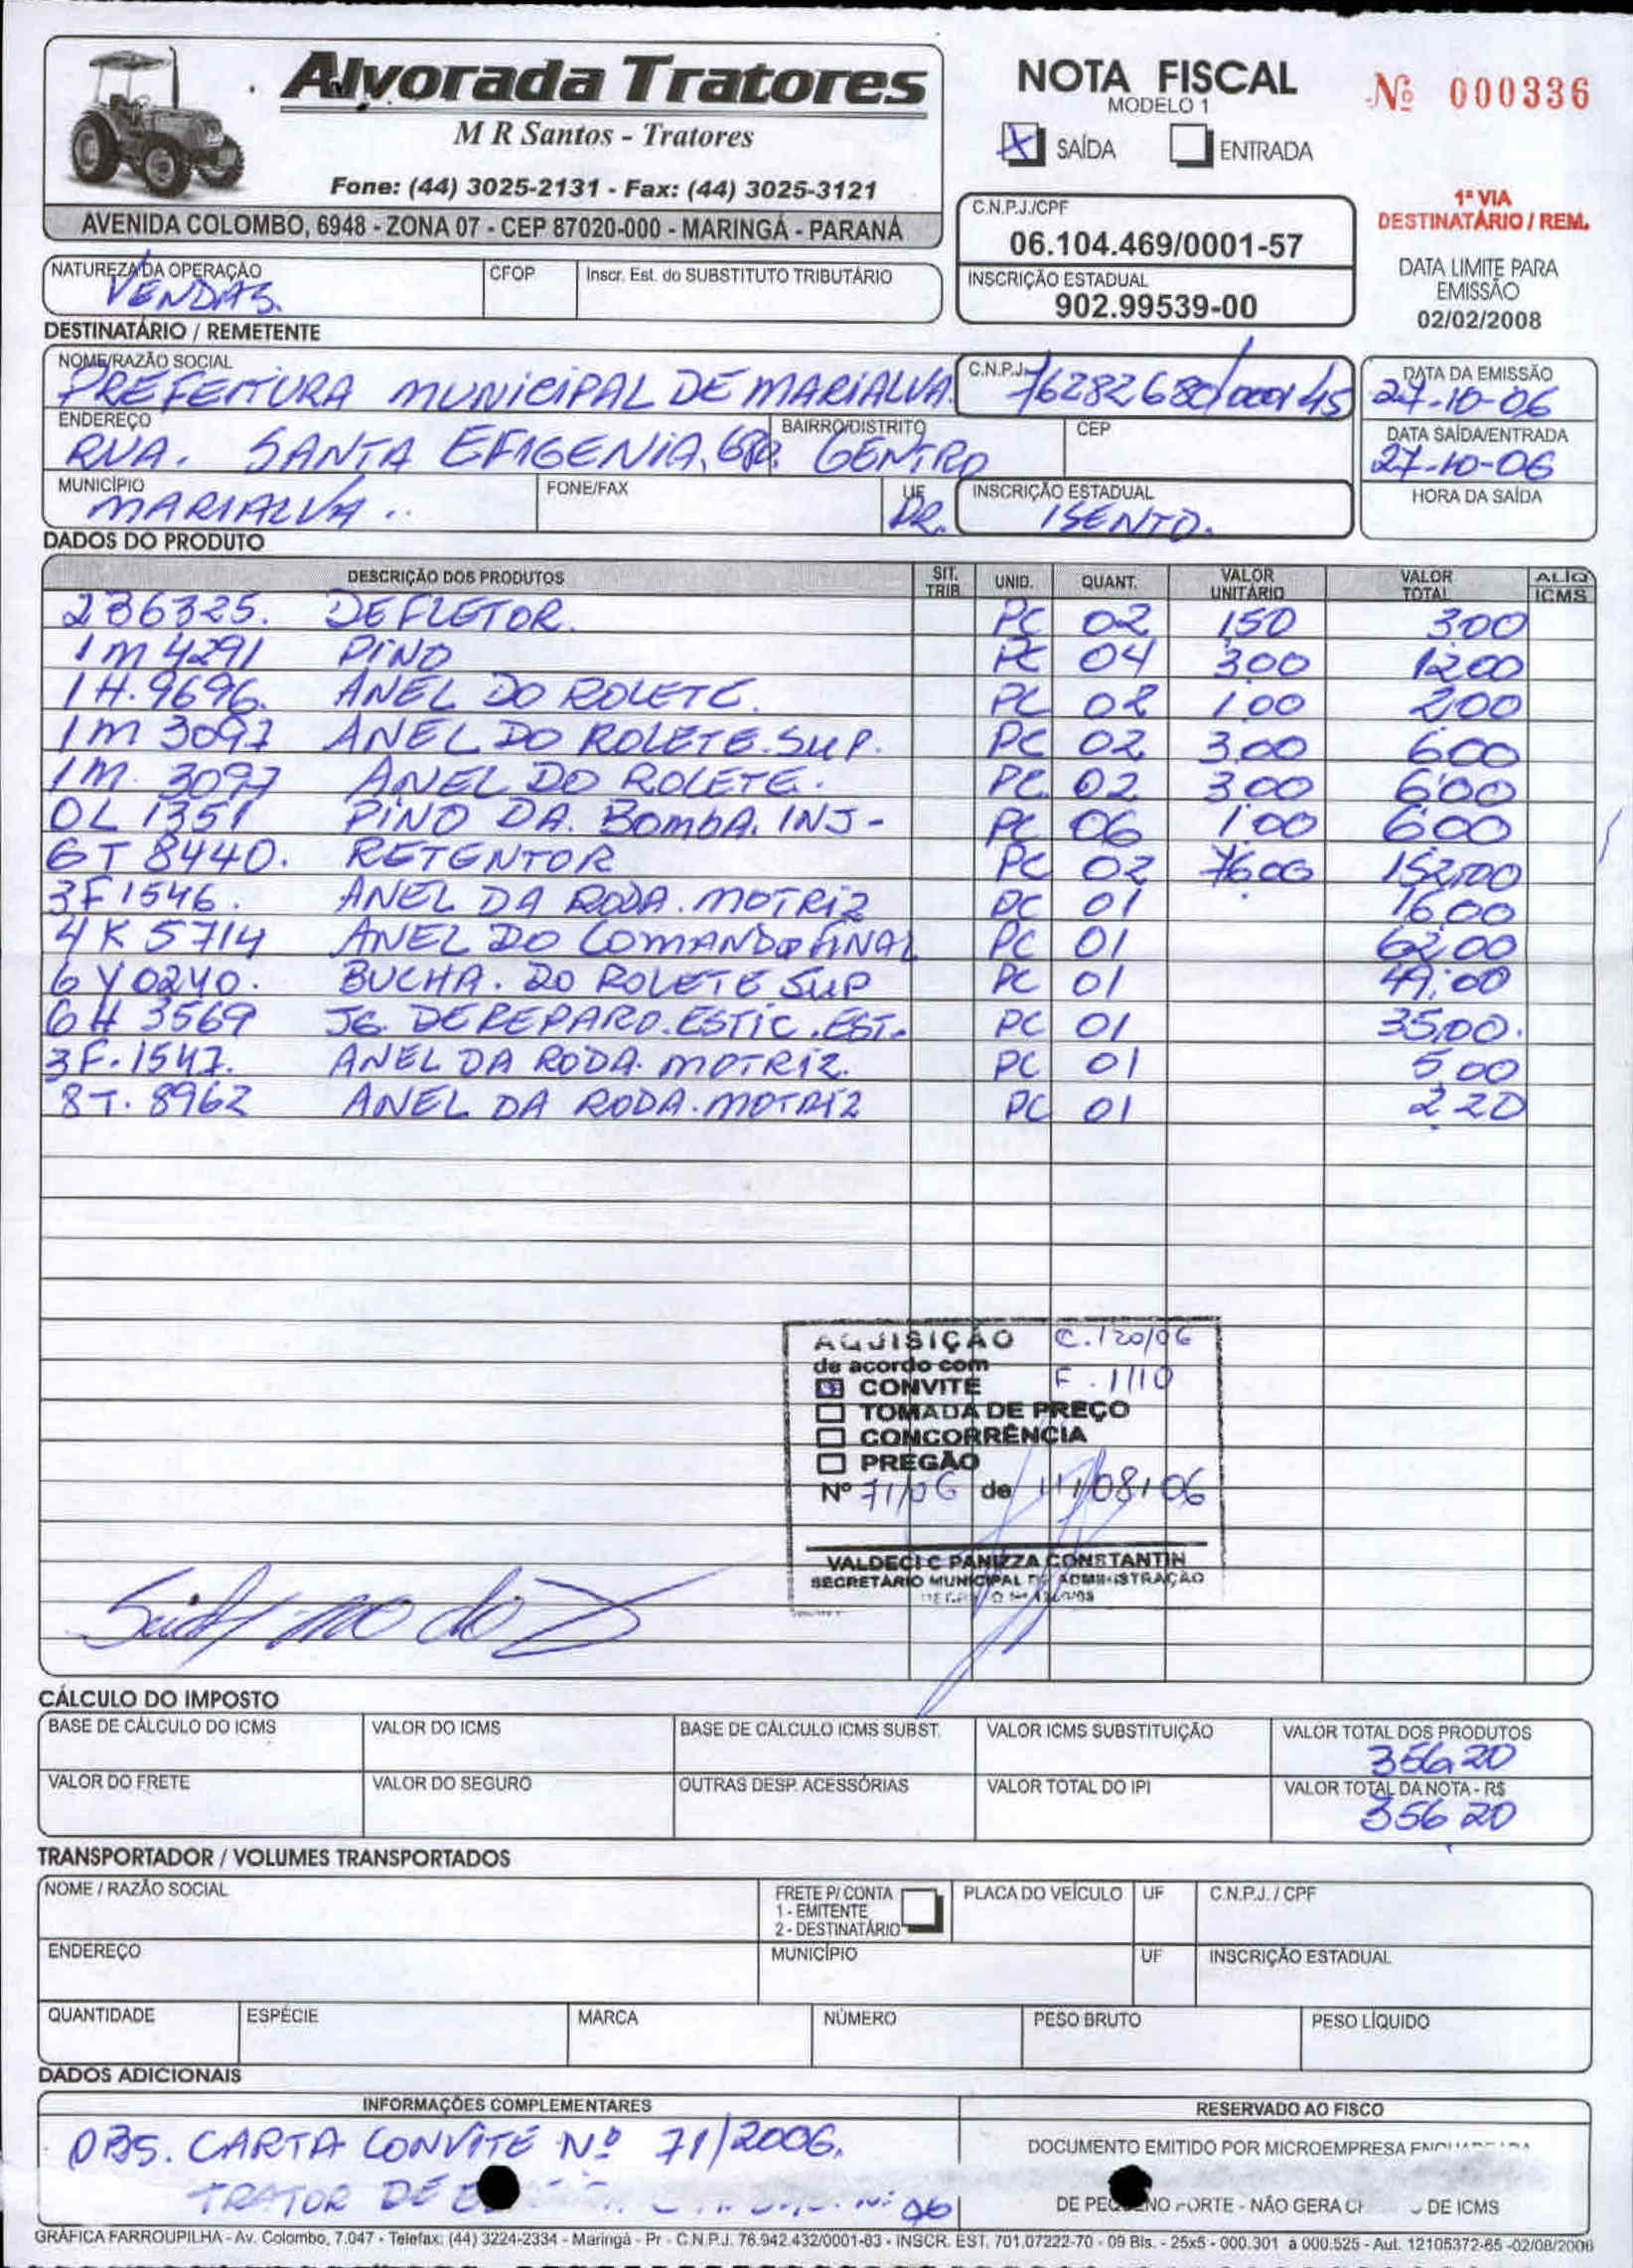 Alvorada Tratores
M R Santos - Tratores
Fone: (44) 3025-2131 - Fax: (44) 3025-3121
AVENIDA COLOMBO, 6948 - ZONA 07 - CEP 87020-000 - MARINGÁ - PARANÁ
NOTA FISCAL
MODELO 1
X SAÍDA ENTRADA
Nº 000336
1ª VIA
DESTINATÁRIO / REM.
C.N.P.J./CPF
06.104.469/0001-57
INSCRIÇÃO ESTADUAL
902.99539-00
DATA LIMITE PARA
EMISSÃO
02/02/2008
NATUREZA DA OPERAÇÃO CFOP Inscr. Est. do SUBSTITUTO TRIBUTÁRIO
VENDAS.
DESTINATÁRIO / REMETENTE
NOME/RAZÃO SOCIAL C.N.P.J. DATA DA EMISSÃO
PREFEITURA MUNICIPAL DE MARIALVA. 76282680/0001-45 27-10-06
ENDEREÇO BAIRRO/DISTRITO CEP DATA SAÍDA/ENTRADA
RUA. SANTA EFIGENIA, 680. CENTRO 27-10-06
MUNICÍPIO FONE/FAX UF INSCRIÇÃO ESTADUAL HORA DA SAÍDA
MARIALVA .. PR. ISENTO.
DADOS DO PRODUTO
DESCRIÇÃO DOS PRODUTOS SIT. TRIB UNID. QUANT. VALOR UNITÁRIO VALOR TOTAL ALIQ ICMS
2B6325. DEFLETOR. PC 02 150 300
1M4291 PINO PC 04 300 1200
1H.9696. ANEL DO ROLETE. PC 02 1,00 2,00
1M 3097 ANEL DO ROLETE.SUP. PC 02 3,00 600
1M. 3097 ANEL DO ROLETE. PC. 02 300 600
OL 1351 PINO DA. BOMBA. INJ- PC 06 100 600
6T 8440. RETENTOR PC 02 7600 152,00
3F1546. ANEL DA RODA.MOTRIZ PC 01 16,00
4K 5714 ANEL DO COMANDO FINAL PC 01 62,00
6Y0240. BUCHA. DO ROLETE SUP PC 01 49,00
6H 3569 JG. DE REPARO.ESTIC.EST. PC 01 35,00.
3F.1547. ANEL DA RODA.MOTRIZ. PC 01 500
8T.8962 ANEL DA RODA.MOTRIZ PC 01 220
AQUISIÇÃO C.120/06
de acordo com F. 1110
CONVITE
TOMADA DE PREÇO
CONCORRÊNCIA
PREGÃO
Nº 71/06 de 11/08/06
VALDECI C PANIZZA CONSTANTIN
SECRETÁRIO MUNICIPAL DE ADMINISTRAÇÃO
CÁLCULO DO IMPOSTO
BASE DE CÁLCULO DO ICMS VALOR DO ICMS BASE DE CÁLCULO ICMS SUBST. VALOR ICMS SUBSTITUIÇÃO VALOR TOTAL DOS PRODUTOS
356,20
VALOR DO FRETE VALOR DO SEGURO OUTRAS DESP. ACESSÓRIAS VALOR TOTAL DO IPI VALOR TOTAL DA NOTA - R$
356 20
TRANSPORTADOR / VOLUMES TRANSPORTADOS
NOME / RAZÃO SOCIAL FRETE P/ CONTA PLACA DO VEÍCULO UF C.N.P.J. / CPF
1 - EMITENTE
2 - DESTINATÁRIO
ENDEREÇO MUNICÍPIO UF INSCRIÇÃO ESTADUAL
QUANTIDADE ESPÉCIE MARCA NÚMERO PESO BRUTO PESO LÍQUIDO
DADOS ADICIONAIS
INFORMAÇÕES COMPLEMENTARES RESERVADO AO FISCO
OBS. CARTA CONVITE Nº 71/2006. DOCUMENTO EMITIDO POR MICROEMPRESA
TRATOR DE Nº 06 DE PEQUENO PORTE - NÃO GERA DE ICMS
GRÁFICA FARROUPILHA - Av. Colombo, 7.047 - Telefax: (44) 3224-2334 - Maringá - Pr - C.N.P.J. 76.942.432/0001-63 - INSCR. EST. 701.07222-70 - 09 Bls. - 25x5 - 000.301 a 000.525 - Aut. 12105372-65 -02/08/2006